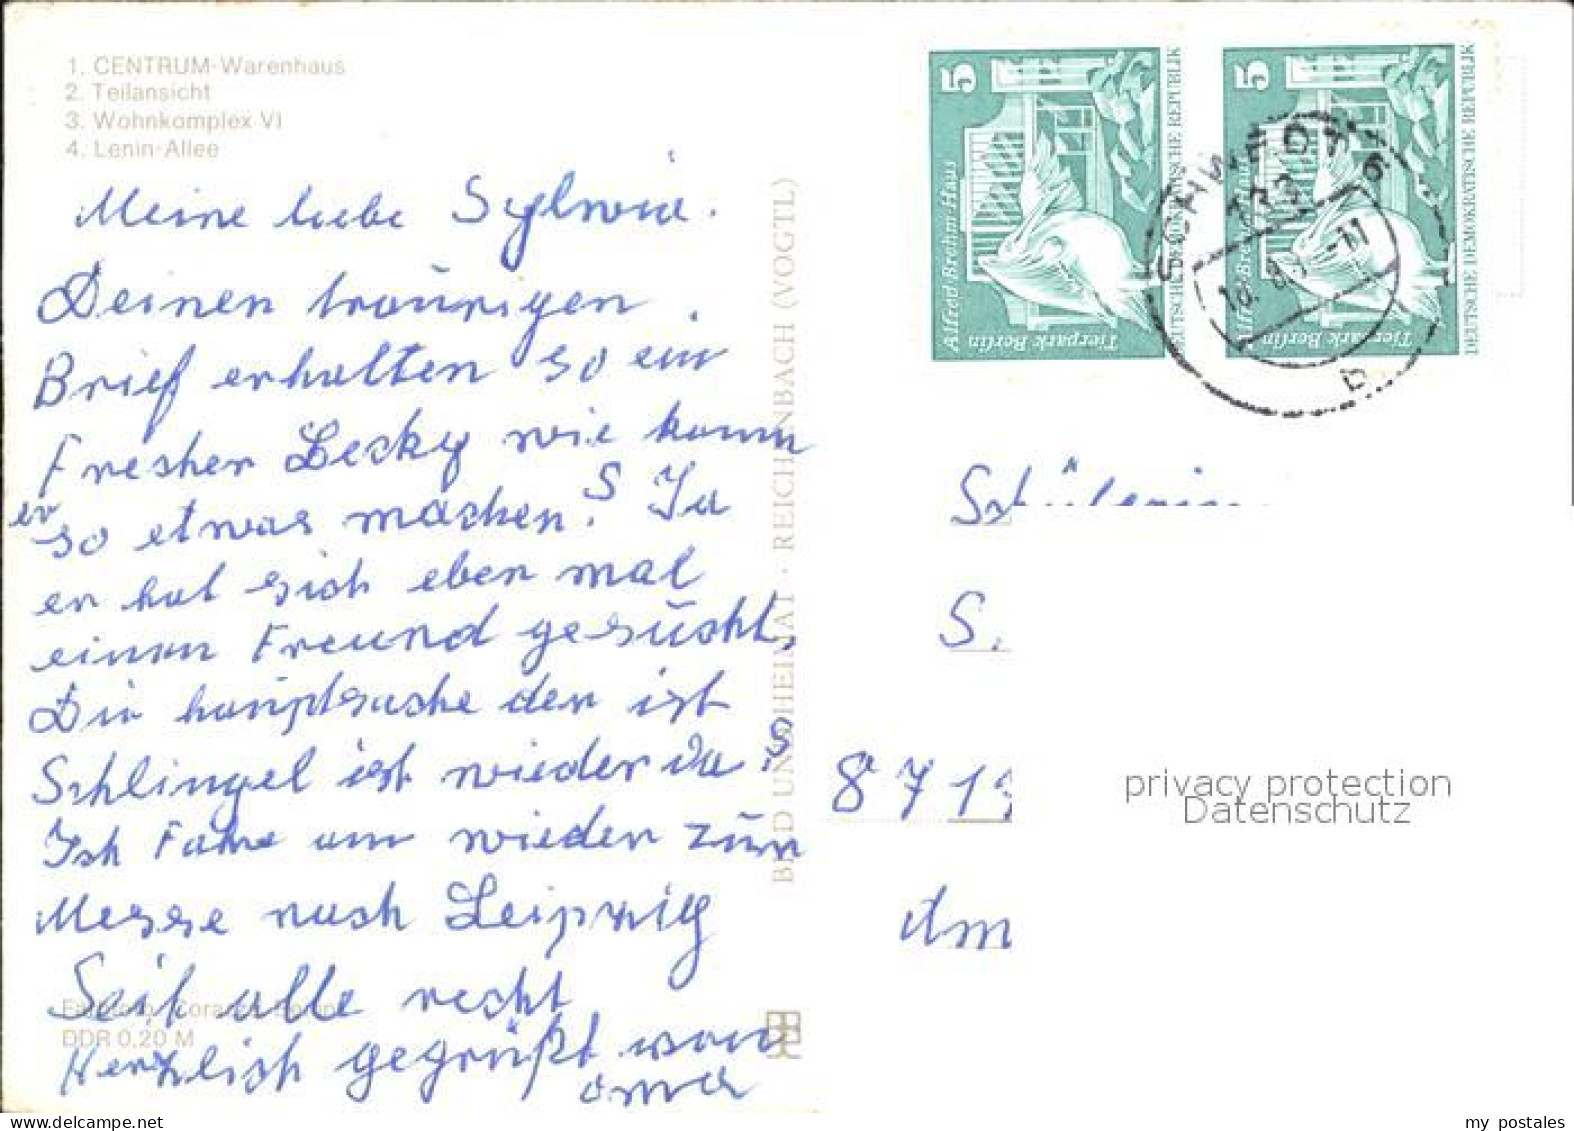 1. CENTRUM-Warenhaus
2. Teilansicht
3. Wohnkomplex VI
4. Lenin-Allee
Meine liebe Sylwia.
Deinen traurigen
Brief erhalten so ein
Frecher Lecky wie kann
er so etwas machen? Ja
er hat sich eben mal
einen Freund gesucht,
Die hauptsache der ist
Schlingel ist wieder da?
Ich Fahre am wieder zur
Messe nach Leipzig
Seit alle recht
Herzlich gegrüßt von
oma
DDR 0,20 M
BILD UND HEIMAT · REICHENBACH (VOGTL)
5
Alfred-Brehm-Haus
Tierpark Berlin
DEUTSCHE DEMOKRATISCHE REPUBLIK
5
Alfred-Brehm-Haus
Tierpark Berlin
DEUTSCHE DEMOKRATISCHE REPUBLIK
SCHWEDT 6
133
b
Schülerin
S.
8719
Am
privacy protection
Datenschutz
my postales